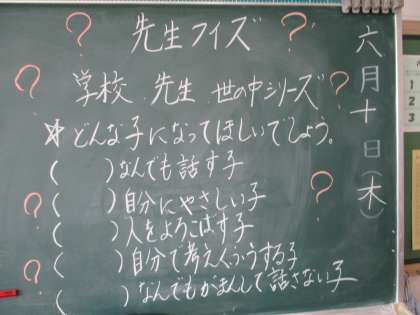 先生クイズ
学校 先生 世の中シリーズ
☆どんな子になってほしいでしょう。
(　　)なんでも話す子
(　　)自分にやさしい子
(　　)人をよろこばす子
(　　)自分で考えくふうする子
(　　)なんでもがまんして話さない子
六月十日(木)
1
2
3